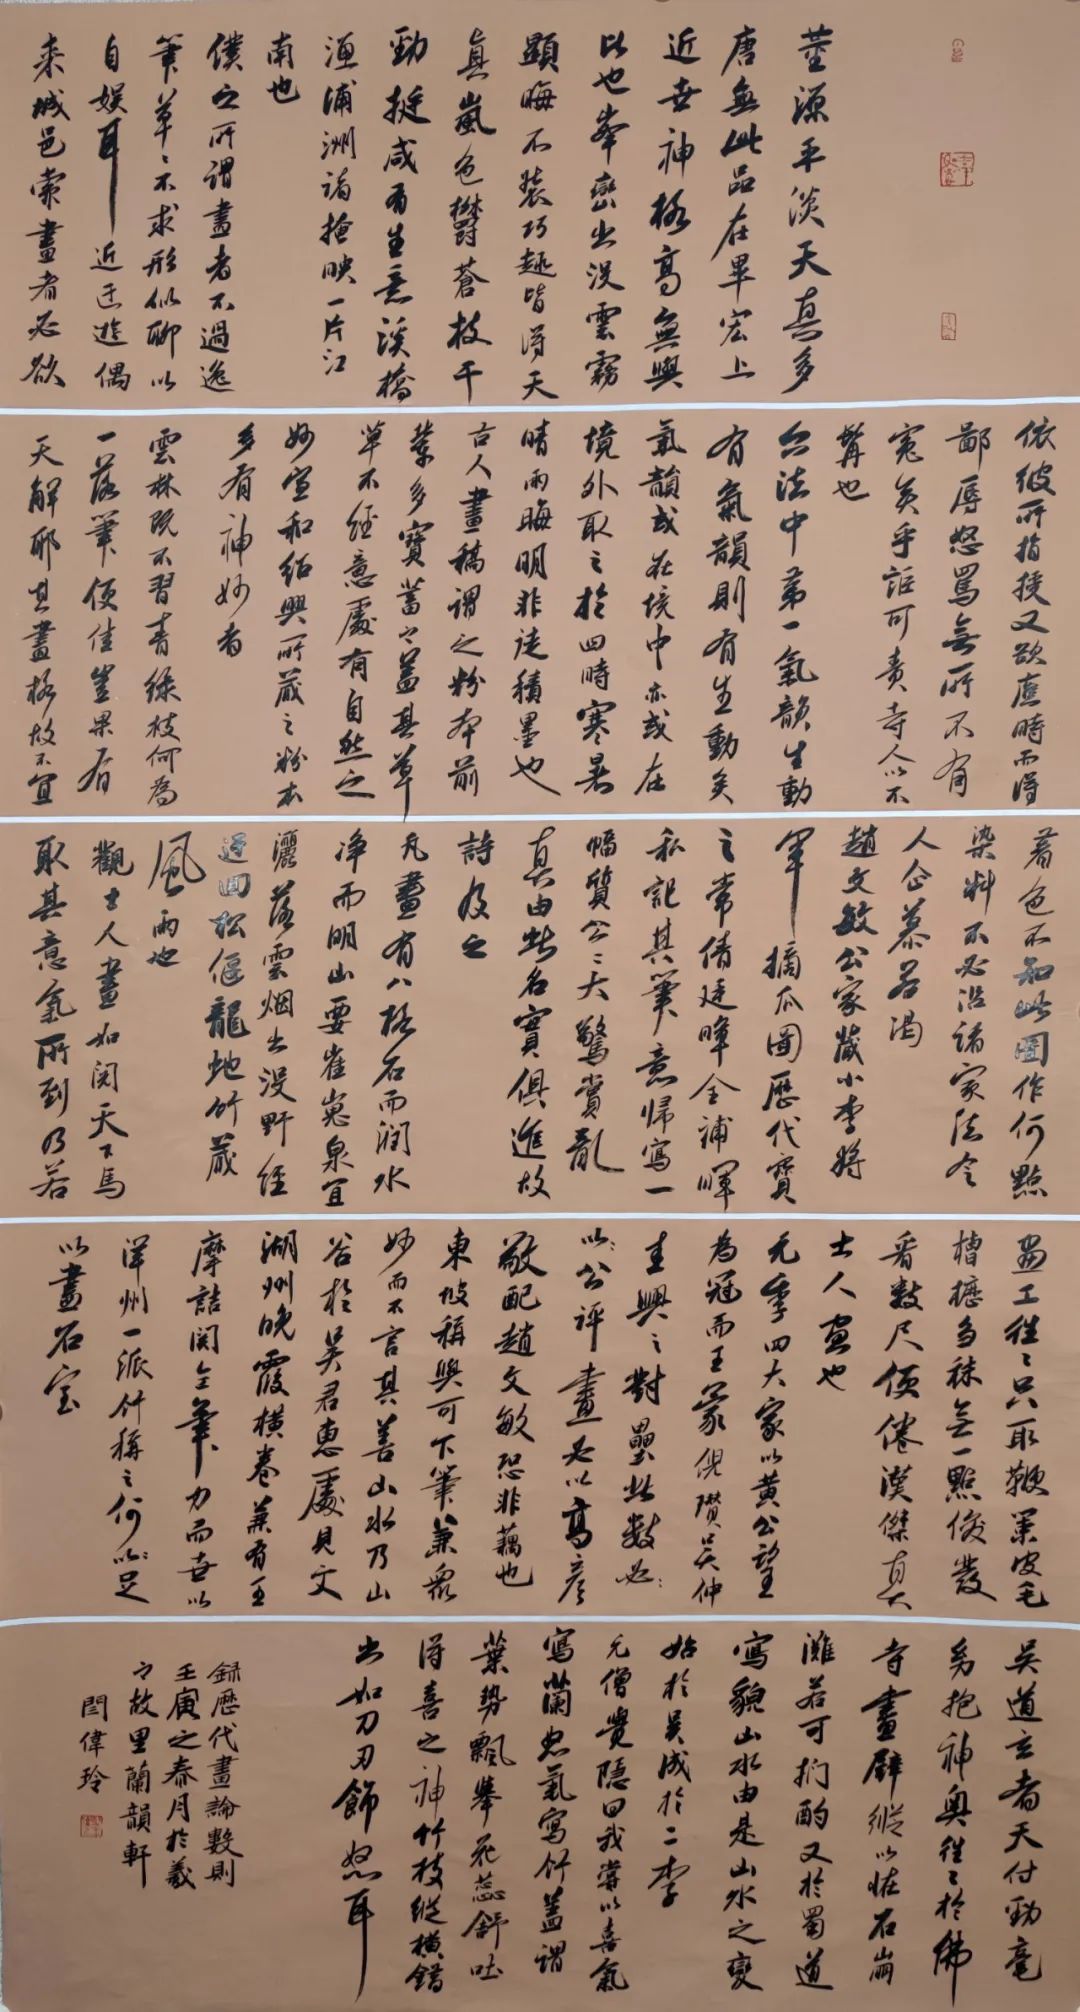 董源平淡天真多
唐無此品在畢宏上
近世神格高無與
比也峯巒出沒雲霧
顯晦不裝巧趣皆得天
真嵐色欝蒼枝干
勁挺咸有生意溪橋
漁浦洲渚掩映一片江
南也
僕之所謂畫者不過逸
筆草〻不求形似聊以
自娱耳近迂遊偶
来城邑索畫者必欲
依彼所指授又欲應時而得
鄙辱怒罵無所不有
冤矣乎詎可責寺人以不
髯也
六法中第一氣韻生動
有氣韻則有生動矣
氣韻或在境中亦或在
境外取之於四時寒暑
晴雨晦明非徒積墨也
古人畫稿謂之粉本前
輩多寶蓄之蓋其草
草不經意處有自然之
妙宣和紹興所藏之粉本
多有神妙者
雲林既不習青綠枝何為
一落筆便佳豈果有
天解耶其畫格故不宜
着色不知此圖作何點
染料不必沿諸家法令
人企慕若渴
趙文敏公家藏小李將
軍摘瓜圖歷代寶
之常倩廷暉全補暉
私記其筆意歸寫一
幅質公〻大驚賞亂
真由此名實俱進故
詩及之
凡畫有八格石而润水
净而明山要崔嵬泉宜
灑落雲烟出没野徑
迂回松偃龍蛇竹藏
風雨也
觀士人畫如閱天下馬
取其意氣所到乃若
畫工往〻只取鞭策皮毛
槽櫪芻秣無一點俊發
看數尺便倦漢傑真
士人畫也
元季四大家以黄公望
為冠而王蒙倪瓚吴仲
圭與之對壘此數必〻
以〻公評畫必以高彦
敬配趙文敏恐非藕也
東坡稱與可下筆兼衆
妙而不言其善山水乃山
谷於吴君惠處見文
湖州晚霞横卷兼有王
摩詰関仝筆力而世以
洋州一派竹稱之何以〻足
以畫石室
吴道玄者天付勁毫
幼抱神奥往〻於佛
寺畫壁縱以怪石崩
滩若可捫酌又於蜀道
寫貌山水由是山水之變
始於吴成於二李
元僧覺隱曰我嘗以喜氣
寫蘭怒氣寫竹蓋謂
葉勢飄舉花蕊舒吐
得喜之神竹枝縱橫錯
出如刀刃飾怒耳
録歷代畫論數則
壬寅之春月於羲
之故里蘭韻軒
閆偉玲